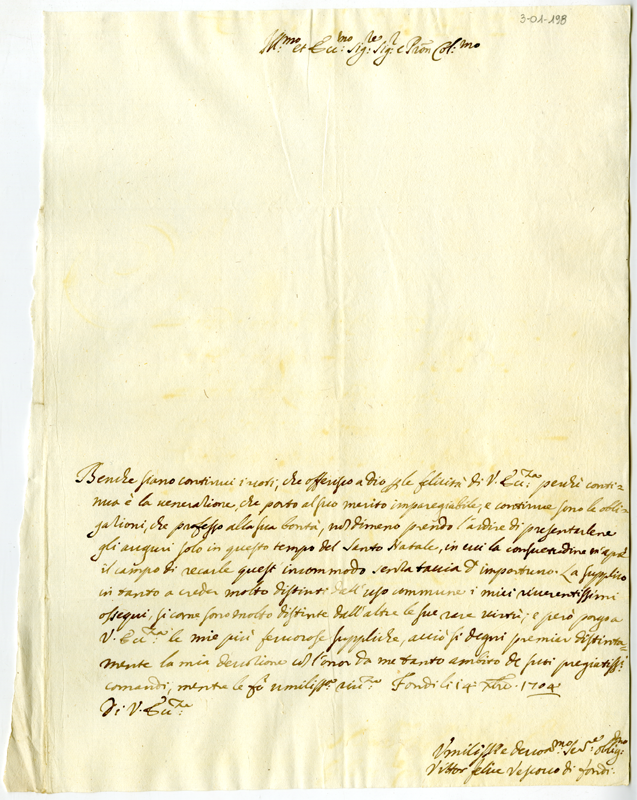 3-01-198
Ill:mo et Ecc:mo Sig:re Sig:r e Pron Col:mo
Benche siano continui i voti, che offerisco a Dio p le felicità di V. Ecc:za perche conti-
nua è la veneratione, che porto al suo merito impareggiabile; e continue sono le obli-
gationi, che professo alla sua bontà, nodimeno prendo l'ardire di presentarlene
gli auguri solo in questo tempo del Santo Natale, in cui la consuetudine m'apre
il campo di recarle quest incommodo senza taccia d' importuno. La supplico
in tanto a creder molto distinti dall'uso commune i miei riverentissimi
ossequi, si come sono molto distinte dall'altre le sue rare virtù; e però porgo a
V. Ecc:za le mie più fervorose suppliche, acciò si degni premiar distinta-
mente la mia devotione co l'onor da me tanto ambito de suoi pregiatissi:
comandi, mentre le fò umiliss:a riv:za Fondi li 14 Xbre 1704
Di V. Ecc:za
Umiliss:e devot:mo Se:re oblig:mo
Vittor felice Vescovo di fondi